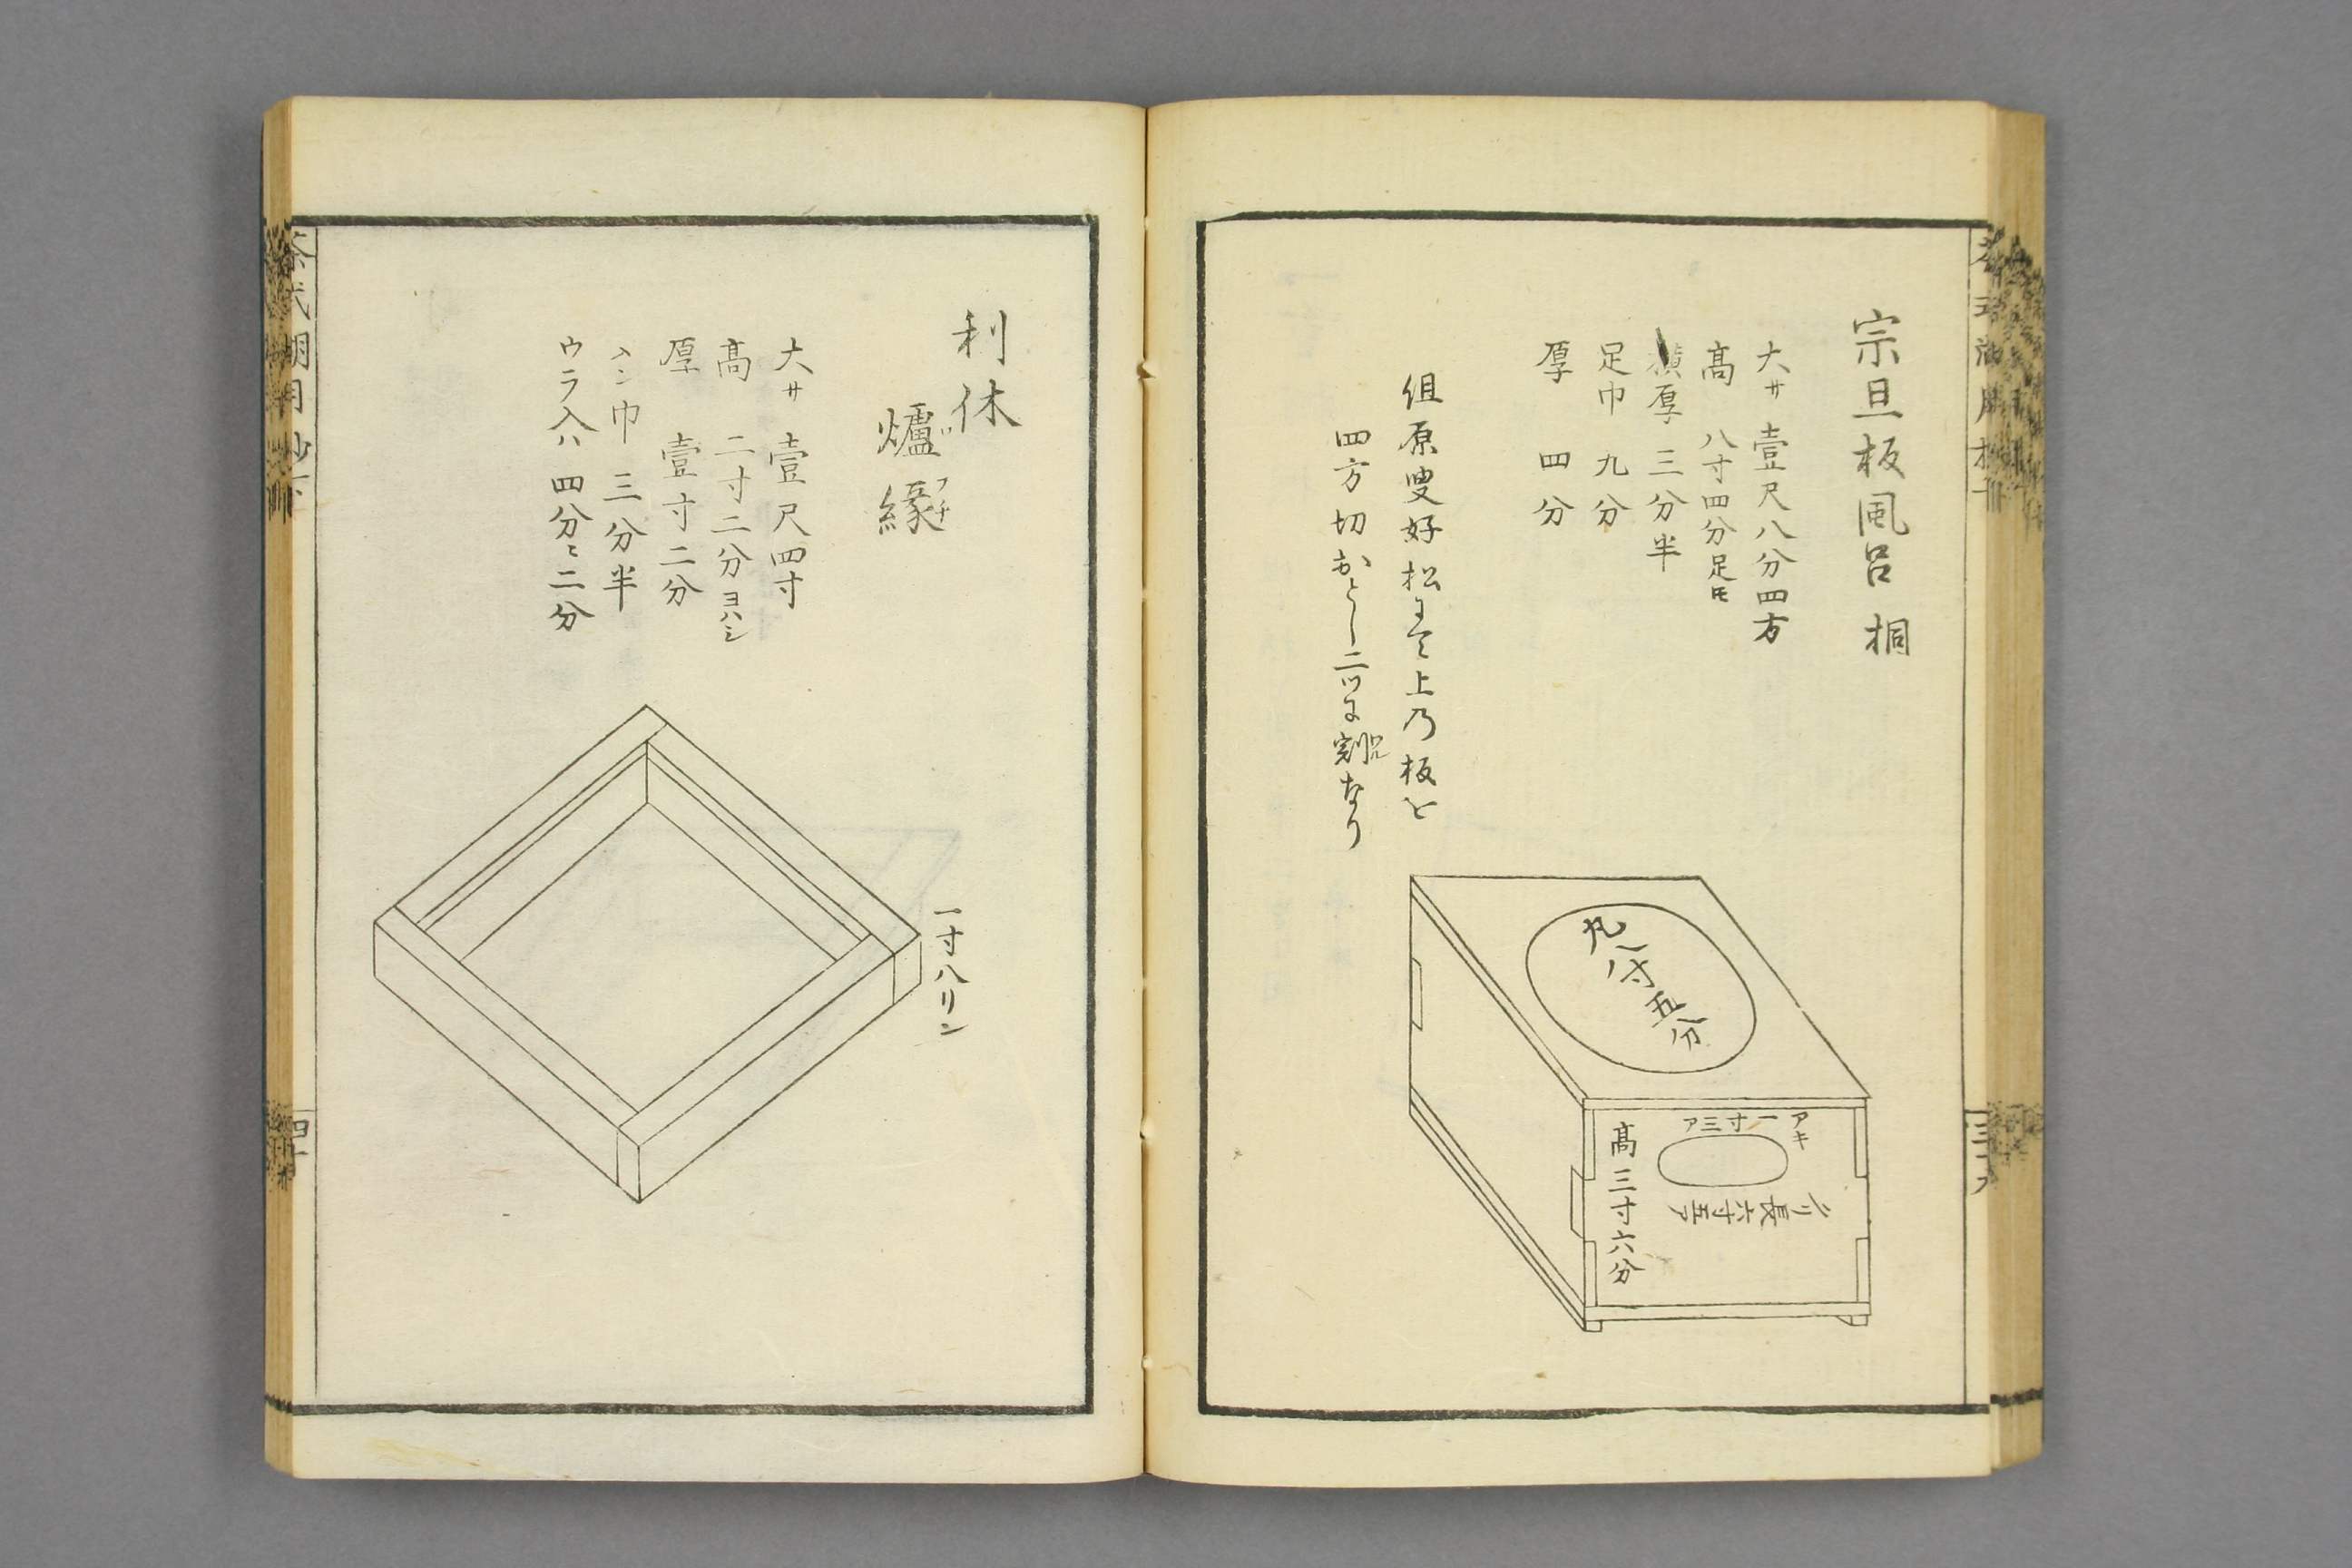 宗旦板風呂 桐
大サ 壹尺八分四方
髙 八寸四分足ヒモ
横厚 三分半
足巾 九分
厚 四分
但原叟好松にて上乃板を
四方切おとし二ツに割なり
丸八寸五分
アキ一寸三ア
クリ長六寸五ア
髙三寸六分
利休
爐縁
ブチ
大サ 壹尺四寸
髙 二寸二分ヨハシ
厚 壹寸二分
メン巾 三分半
ウラ入ハ 四分ニ二分
一寸八リン